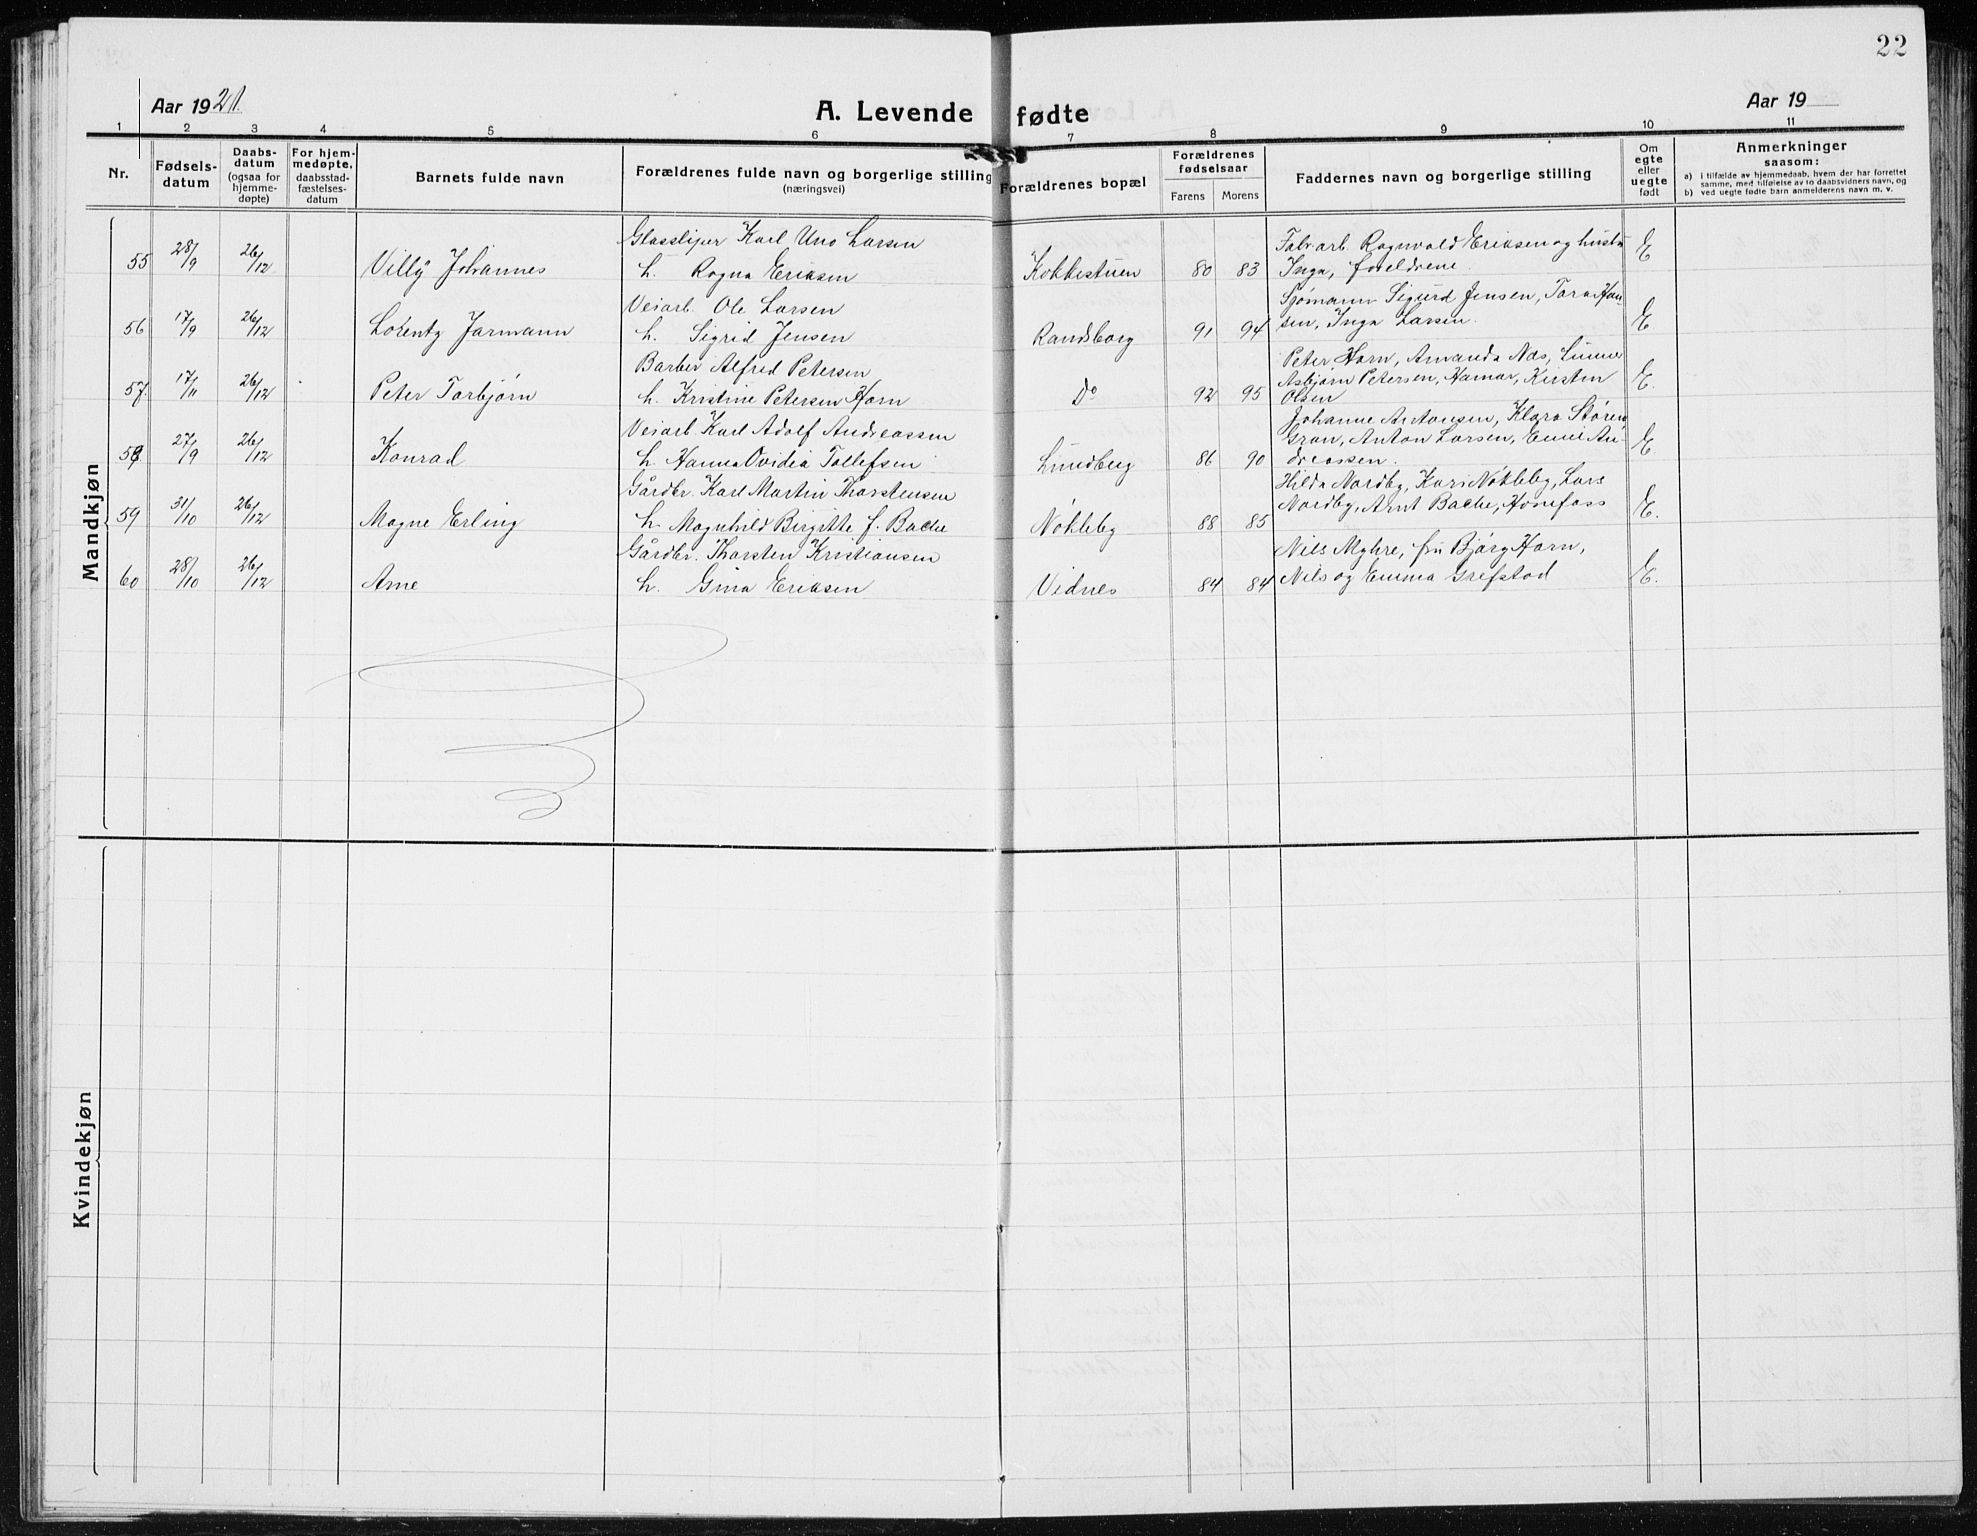 22
Aar 1921.
A. Levende fødte
Aar 19
1 2 3 4 5 6 7 8 9 10 11
Nr.
Fødsels-
datum
Daabs-
datum
(ogsaa for
hjemme-
døpte)
For hjem-
medøpte,
daabsstad-
fæstelses-
datum
Barnets fulde navn
Forældrenes fulde navn og borgerlige stilling
(næringsvei)
Forældrenes bopæl
Forældrenes
fødselsaar
Farens Morens
Faddernes navn og borgerlige stilling
Om
egte
eller
uegte
født
Anmerkninger
saasom:
a) i tilfælde av hjemmedaab, hvem der har forrettet
samme, med tilføielse av to daabsvidners navn, og
b) ved uegte fødte barn anmelderens navn m. v.
Mandkjøn
Glassliper Karl Uno Larsen
Fabr.arb. Ragnvald Eriksen og hustru
55 28/9 26/12 Villy Johannes h. Ragna Eriksen Kokkestuen 80 83 Inga, foreldrene. E
Veiarb. Ole Larsen
Sjømann Sigurd Jensen, Tora Han
56 17/9 26/12 Lorentz Jarmann h. Sigrid Jensen Randsborg 91 94 sen, Inga Larsen. E
Barber Alfred Petersen
Peter Horn, Amanda Næs, Lunner
57. 17/11 26/12 Peter Torbjørn h. Kristine Petersen Horn Do 92 95 Asbjørn Petersen, Hamar, Kirsten E.
Olsen
Veiarb. Karl Adolf Andreassen
Johanne Antonsen, Klara Støren
58. 27/9 26/12 Konrad h. Hanna Ovidia Tollefsen Lundberg 86 90 Gran, Anton Larsen, Emil An- E
dreassen.
Gårdbr. Karl Martin Thorstensen
Hilda Nordby, Kari Nökleby, Lars
59 31/10 26/12 Magne Erling h. Magnhild Birgitte f. Bache Nökleby 88 85 Nordby, Arnt Bache, Hönefoss E.
Gårdbr. Thorsten Kristiansen
Nils Myhre, fru Bjørg Horn,
60 28/10 26/12 Arne h. Gina Eriksen Vidnes 84 84 Nils og Emma Grefstad E.
Kvindekjøn